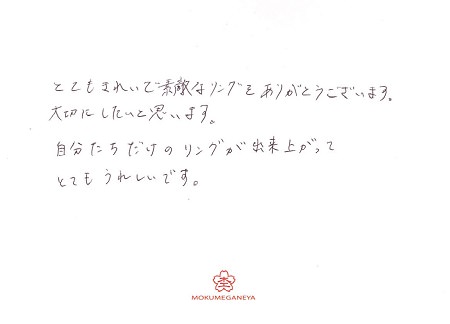 とてもきれいで素敵なリングをありがとうございます。
大切にしたいと思います。
自分たちだけのリングが出来上がって
とてもうれしいです。
MOKUMEGANEYA